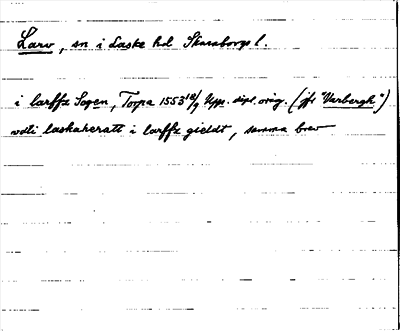 Larv, sn i Laske hd Skaraborgs l.
i larffz Sogen, Torpa 1553 18/9 Upps. dipl. orig. (jfr "Varbergh")
vdti laskaheratt i larffz gieldt, samma brev